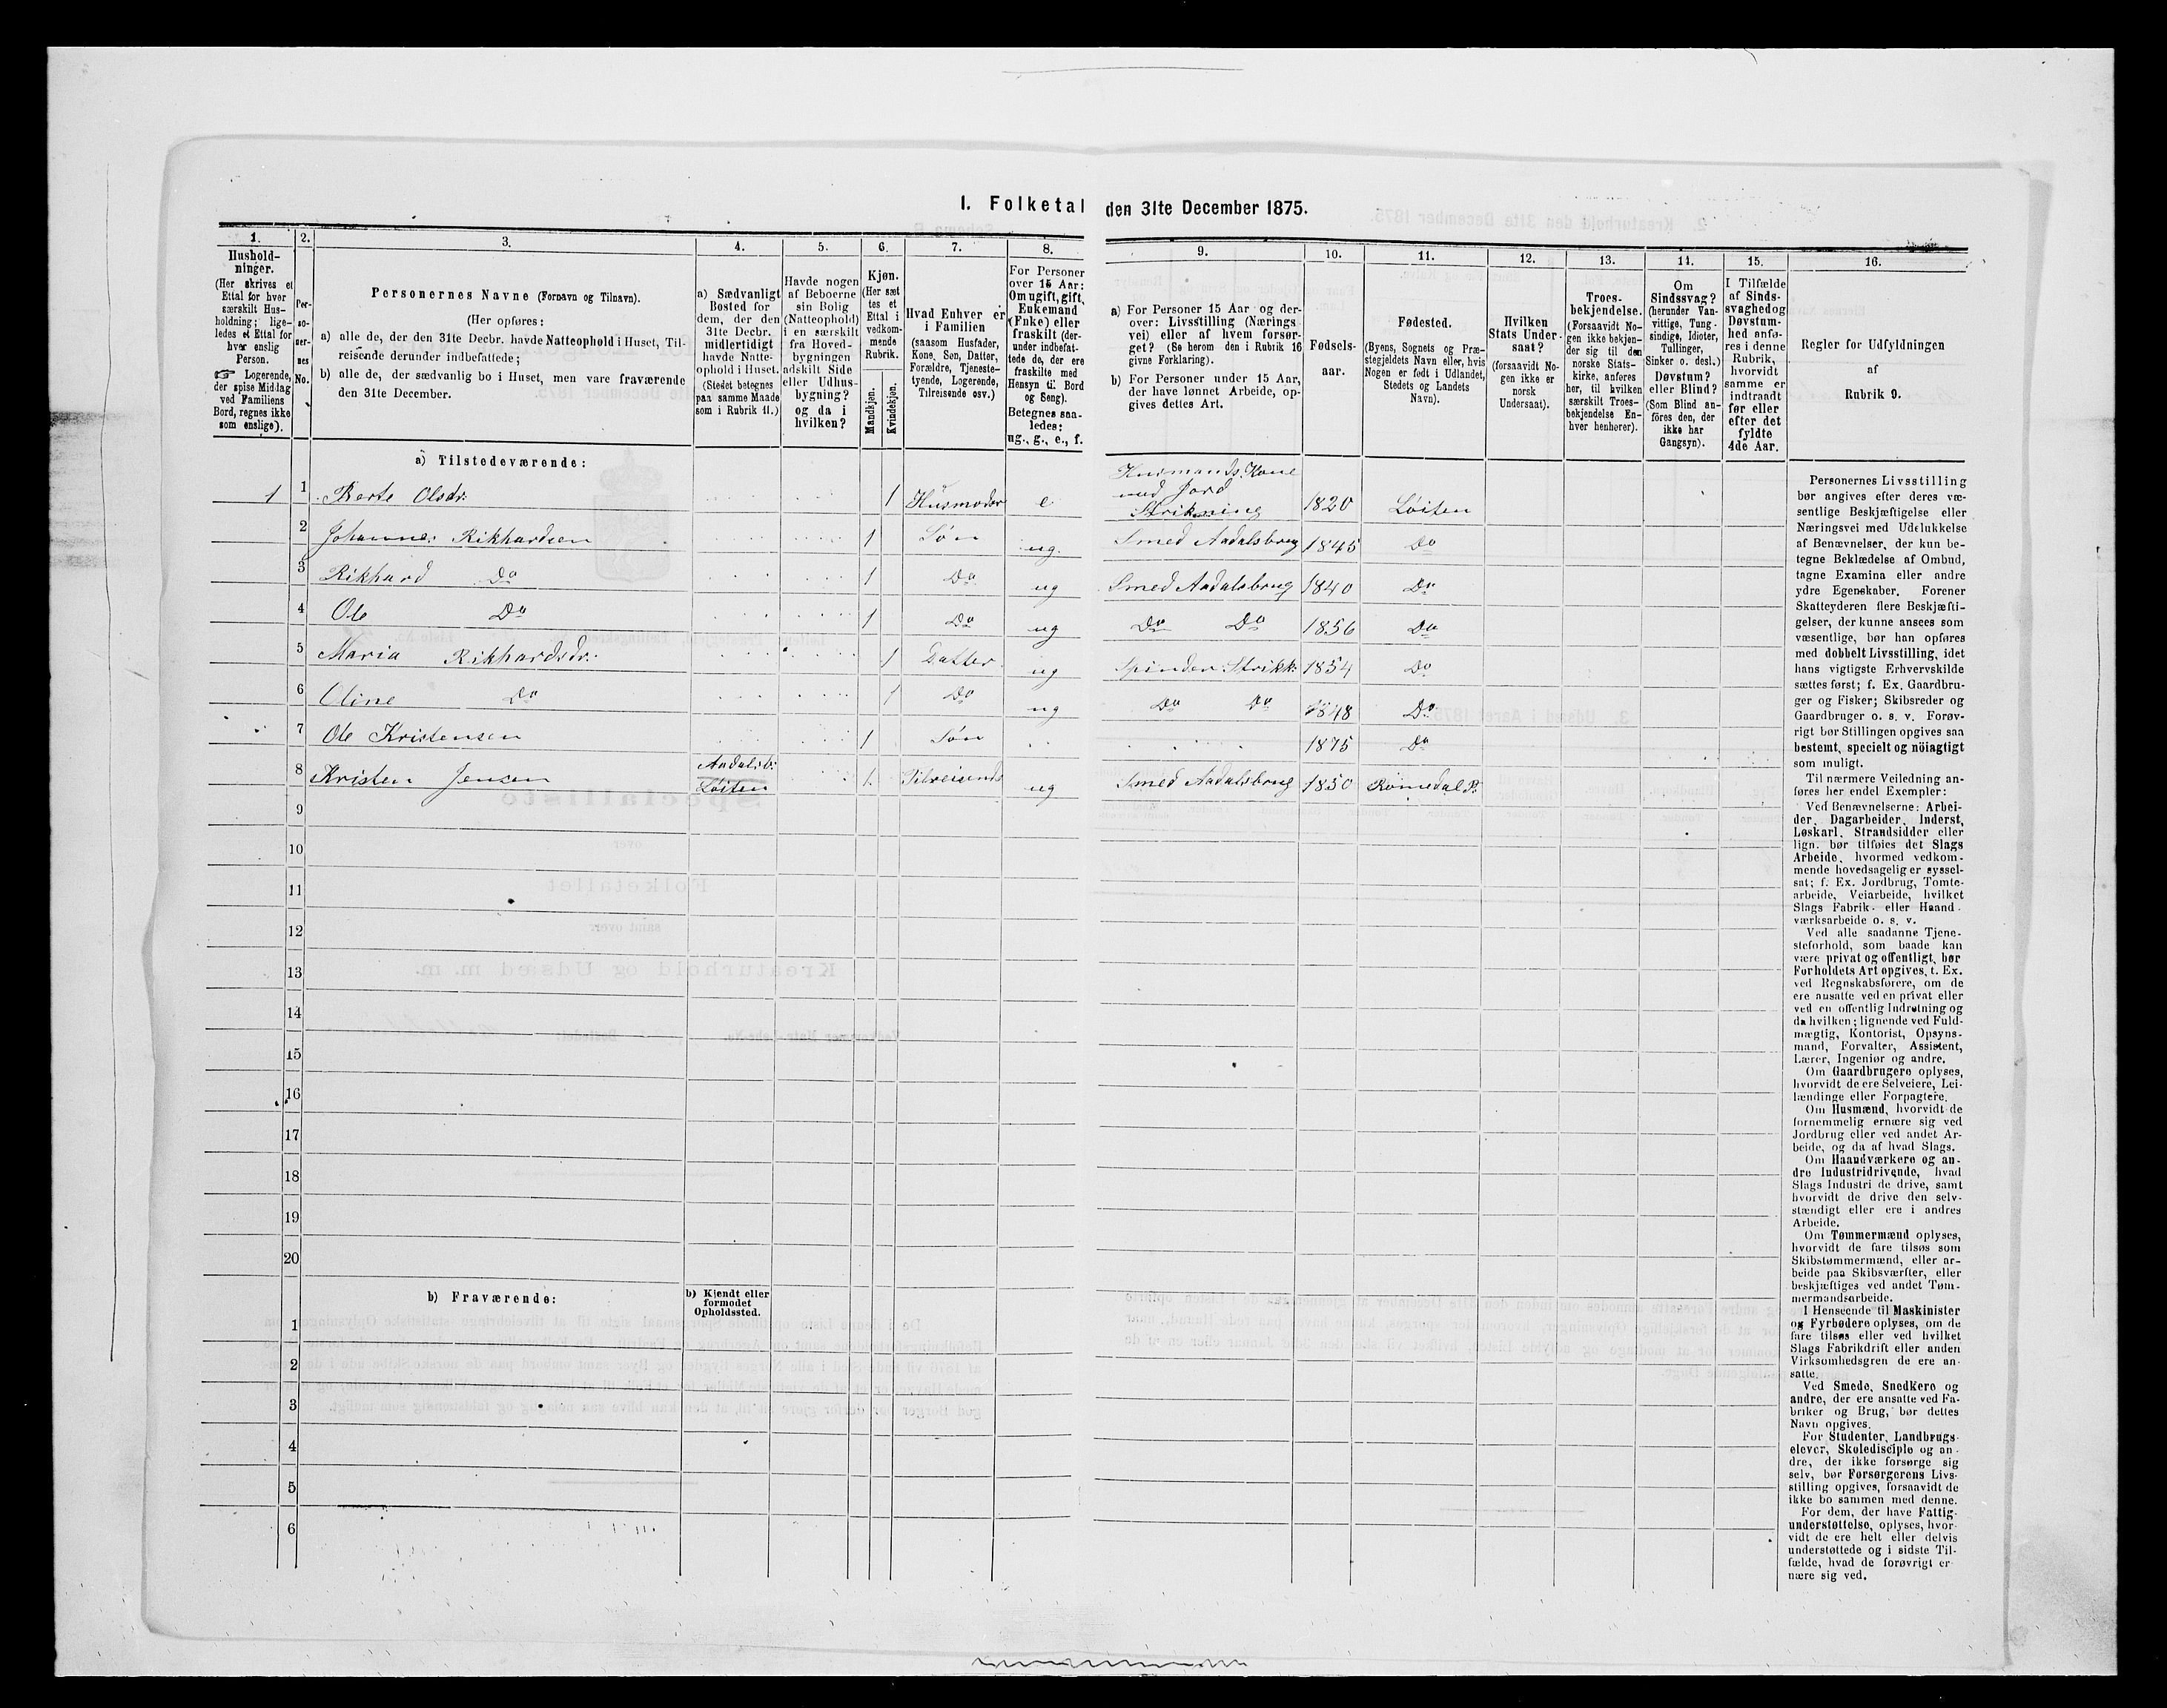 I. Folketal den 31te December 1875.
1. 2. 3. 4. 5. 6. 7. 8. 9. 10. 11. 12. 13. 14. 15. 16.
Hushold-
ninger.
(Her skrives et
Ettal for hver
særskilt Hus-
holdning; lige-
ledes et Ettal for
hver enslig
Person.
☞ Logerende,
der spise Middag
ved Familiens
Bord, regnes ikke
som enslige).
Per-
so-
ner-
nes
No.
Personernes Navne (Fornavn og Tilnavn).
(Her opføres:
a) alle de, der den 31te Decbr. havde Natteophold i Huset, Til-
reisende derunder indbefattede;
b) alle de, der sædvanlig bo i Huset, men vare fraværende
den 31te December.
a) Sædvanligt
Bosted for
dem, der den
31te Decbr.
midlertidigt
havde Natte-
ophold i Huset.
(Stedet betegnes
paa samme Maade
som i Rubrik 11.)
Havde nogen
af Beboerne
sin Bolig
(Natteophold)
i en særskilt
fra Hoved-
bygningen
adskilt Side
eller Udhus-
bygning?
og da i
hvilken?
Kjøn.
(Her sæt
tes et
Ettal i
vedkom-
mende
Rubrik.
Mandkjøn.
Kvindekjøn.
Hvad Enhver er
i Familien
(saasom Husfader,
Kone, Søn, Datter,
Forældre, Tjeneste-
tyende, Logerende,
Tilreisende osv.)
For Personer
over 15 Aar:
Om ugift, gift,
Enkemand
(Enke) eller
fraskilt (der-
under indbefat-
tede de, der ere
fraskilte med
Hensyn til Bord
og Seng).
Betegnes saa-
ledes:
ug., g., e., f.
a) For Personer 15 Aar og der-
over: Livsstilling (Nærings
vei) eller af hvem forsør-
get? (Se herom den i Rubrik 16
givne Forklaring).
b) For Personer under 15 Aar,
der have lønnet Arbeide, op-
gives dettes Art.
Fødsels-
aar.
Fødested.
(Byens, Sognets og Præ-
stegjeldets Navn eller, hvis
Nogen er født i Udlandet,
Stedets og Landets
Navn).
Hvilken
Stats Under-
saat?
(forsaavidt No-
gen ikke er
norsk
Undersaat).
Troes-
bekjendelse.
(Forsaavidt No-
gen ikke bekjen-
der sig til den
norske Stats-
kirke, anføres
her, til hvilken
særskilt Troes-
bekjendelse En-
hver henhører).
Om
Sindssvag?
(herunder Van-
vittige, Tung-
sindige, Idioter,
Tullinger,
Sinker o. desl.)
Døvstum?
eller Blind?
(Som Blind an-
føres den, der
ikke har
Gangsyn).
I Tilfælde
af Sinds-
svaghed og
Døvstum-
hed anfø-
res i denne
Rubrik,
hvorvidt
samme er
indtraadt
før eller
efter det
fyldte
4de Aar.
Regler for Udfyldningen
af
Rubrik 9.
a) Tilstedeværende:
1 1 Berte Olsdr. 1 Husmoder e Husmands Kone
med Jord
Strikning 1820 Løiten
2 Johannes Rikhardsen 1 Søn ug. Smed Aadalsbrug 1845 Do
3 Rikhard Do 1 Do ug Smed Aadalsbrug 1840 Do
4 Ole Do 1 Do ug Do Do 1856 Do
5 Maria Rikhardsdr. 1 Datter ug Spinder Strikk: 1854 Do
6 Oline Do 1 Do ug Do Do 1848 Do
7 Ole Kristensen 1 Søn 1875 Do
8 Kristen Jensen Aadalsb:
Løiten 1. Tilreisende ug Smed Aadalsbrug 1850 Romedal P.
9
10
11
12
13
14
15
16
17
18
19
20
b) Fraværende:
b) Kjendt eller
formodet
Opholdssted.
1
2
3
4
5
6
Personernes Livsstilling
bør angives efter deres væ-
sentlige Beskjæftigelse eller
Næringsvei med Udelukkelse
af Benævnelser, der kun be-
tegne Beklædelse af Ombud,
tagne Examina eller andre
ydre Egenskaber. Forener
Skatteyderen flere Beskjæfti-
gelser, der kunne ansees som
væsentlige, bør han opføres
med dobbelt Livsstilling, idet
hans vigtigste Erhvervskilde
sættes først; f. Ex. Gaardbru-
ger og Fisker; Skibsreder og
Gaardbruger o. s. v. Forøv-
rigt bør Stillingen opgives saa
bestemt, specielt og nöiagtigt
som muligt.
Til nærmere Veiledning an-
føres her endel Exempler:
Ved Benævnelserne: Arbei-
der, Dagarbeider, Inderst,
Løskarl, Strandsidder eller
lign. bør tilføies det Slags
Arbeide, hvormed vedkom-
mende hovedsagelig er syssel-
sat; f. Ex. Jordbrug, Tomte-
arbeide, Veiarbeide, hvilket
Slags Fabrik- eller Haand-
værksarbeide o. s. v.
Ved alle saadanne Tjene-
steforhold, som baade kan
være privat og offentligt, bør
Forholdets Art opgives, t. Ex.
ved Regnskabsførere, om de
ere ansatte ved en privat eller
ved en offentlig Indretning og
da hvilken; lignende ved Fuld-
mægtig, Kontorist, Opsyns-
mand, Forvalter, Assistent,
Lærer, Ingeniør og andre.
Om Gaardbrugere oplyses,
hvorvidt de ere Selveiere, Lei-
lændinge eller Forpagtere.
Om Husmænd, hvorvidt de
fornemmelig ernære sig ved
Jordbrug eller ved andet Ar-
beide, og da af hvad Slags.
Om Haandværkere og an-
dre Industridrivende, hvad
Slags Industri de drive, samt
hvorvidt de drive den selv-
stændigt eller ere i andres
Arbeide.
Om Tømmermænd oplyses,
hvorvidt de fare tilsøs som
Skibstømmermænd, eller ar-
beide paa Skibsværfter, eller
beskjæftiges ved andet Tøm-
mermandsarbeide.
I Henseende til Maskinister
og Fyrbødere oplyses, om de
fare tilsøs eller ved hvilket
Slags Fabrikdrift eller anden
Virksomhedsgren de ere an-
satte.
Ved Smede, Snedkere og
andre, der ere ansatte ved Fa-
briker og Brug, bør dettes
Navn opgives.
For Studenter, Landbrugs-
elever, Skoledisciple og an-
dre, der ikke forsørge sig
selv, bør Forsørgerens Livs-
stilling opgives, forsaavidt de
ikke bo sammen med denne.
For dem, der have Fattig-
understøttelse, oplyses, hvor-
vidt de ere helt eller delvis
understøttede og i sidste Til-
fælde, hvad de forøvrigt er-
nære sig ved.